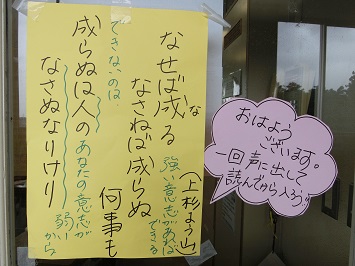 なせば成る
な
(上杉ようざん)
強い意志があれば
できる
なさねば成らぬ
何事も
できないのは
成らぬは人の
あなたの意志が
弱いから
なさぬなりけり
おはよう
ございます。
一回声に出して
読んでから入ろう!!